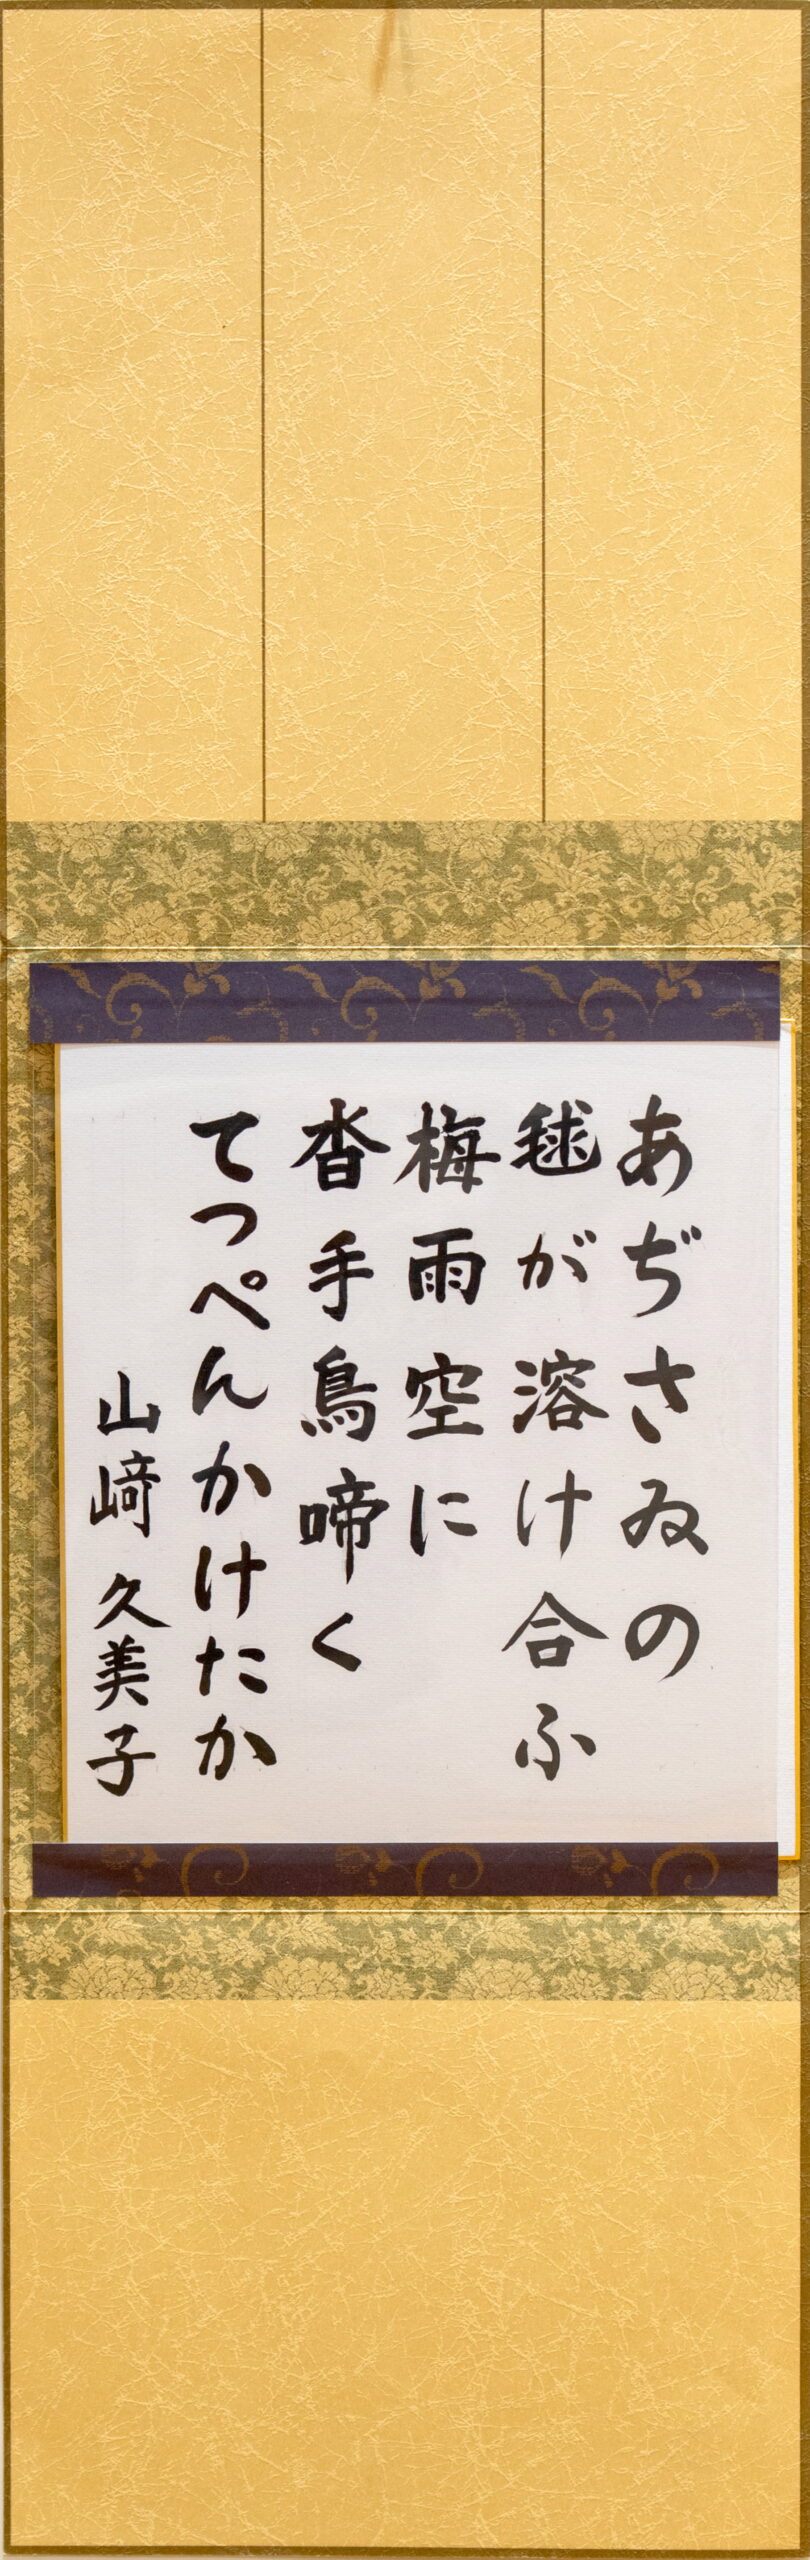 あぢさゐの
毬が溶け合ふ
梅雨空に
沓手鳥啼く
てつぺんかけたか
山﨑 久美子